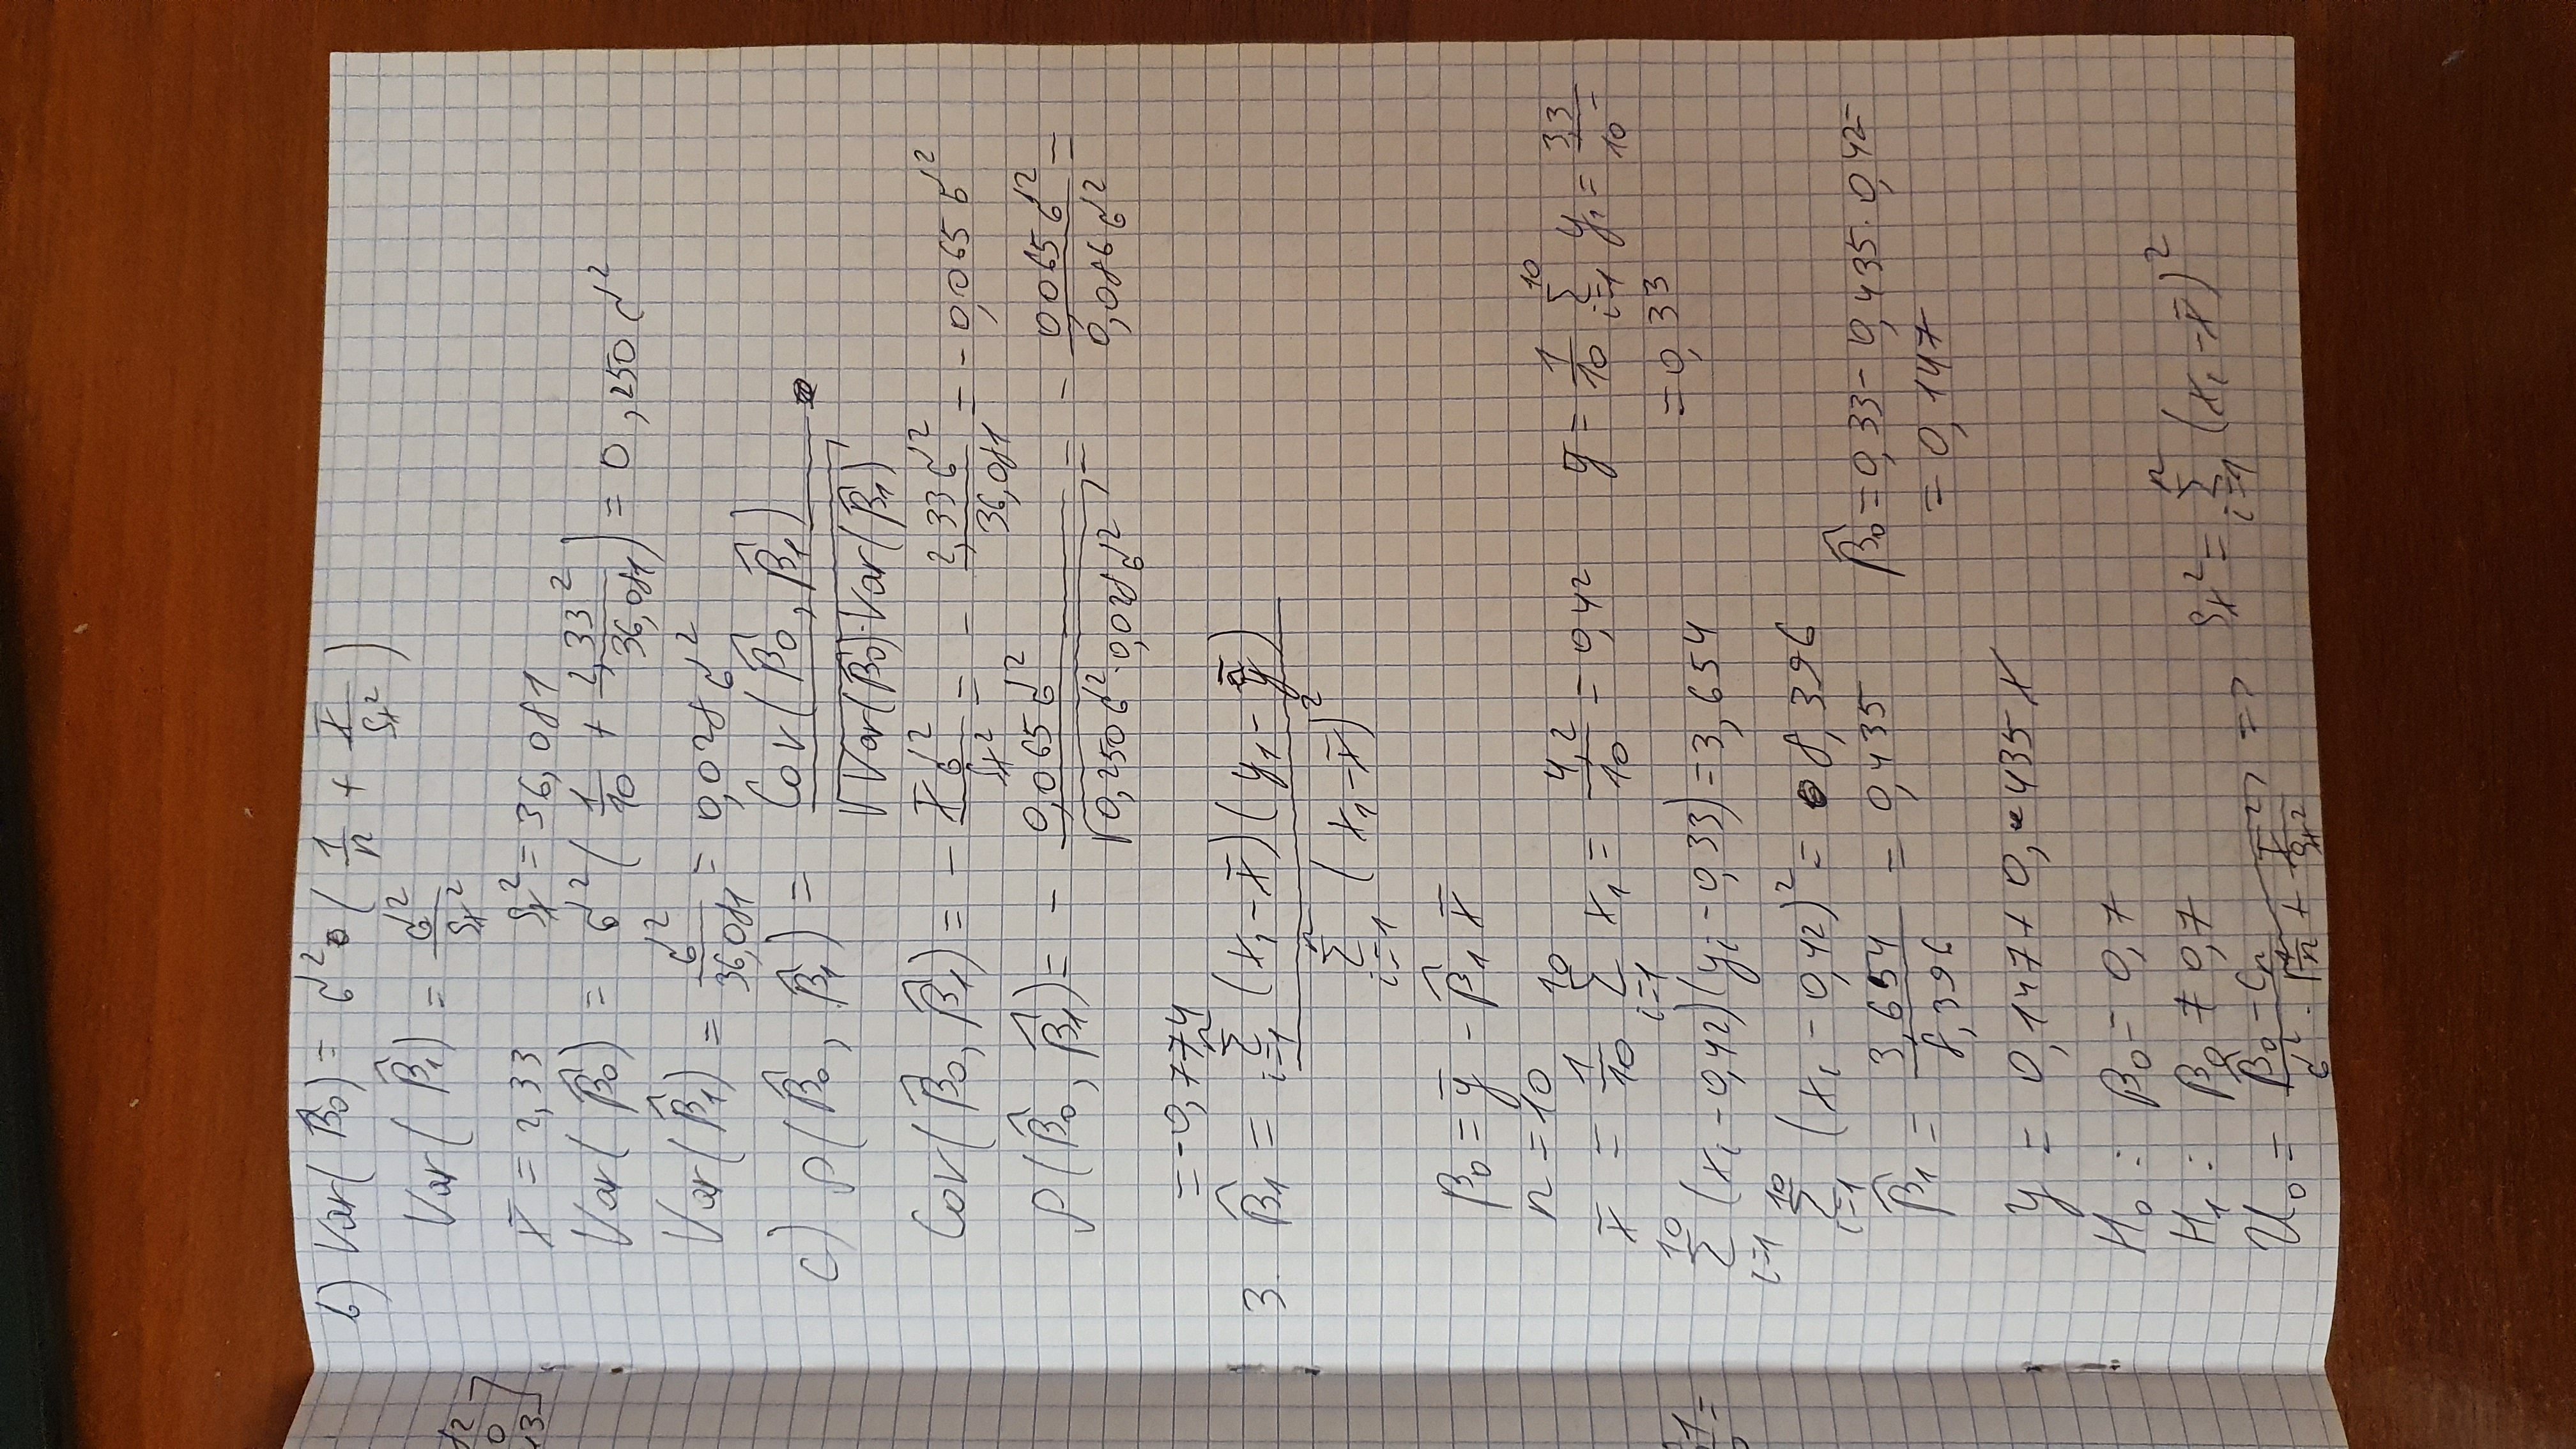 82
0
13
b) Var(β̂0) = σ² · (1/n + x̄/Sx²)
Var(β̂1) = σ²/Sx²
x̄ = 2,33 Sx² = 36,081
Var(β̂0) = σ² (1/10 + 2,33²/36,081) = 0,250 σ²
Var(β̂1) = σ²/36,081 = 0,028 σ²
c) ρ(β̂0, β̂1) = Cov(β̂0, β̂1)/√(Var(β̂0)·Var(β̂1))
Cov(β̂0, β̂1) = - x̄σ²/Sx² = - 2,33σ²/36,081 = -0,065 σ²
ρ(β̂0, β̂1) = - 0,065σ²/√(0,250σ²·0,028σ²) = - 0,065σ²/0,086σ² =
= -0,774
3. β̂1 = Σⁿᵢ₌₁ (x₁ - x̄)(y₁ - ȳ) / Σⁿᵢ₌₁ (x₁ - x̄)²
β0 = ȳ - β̂1 x̄
n = 10
x̄ = 1/10 Σ¹⁰ᵢ₌₁ x₁ = 4,2/10 = 0,42 ȳ = 1/10 Σ¹⁰ᵢ₌₁ y₁ = 3,3/10 =
= 0,33
Σ¹⁰ᵢ₌₁ (xᵢ - 0,42)(yᵢ - 0,33) = 3,654
Σ¹⁰ᵢ₌₁ (xᵢ - 0,42)² = 8,396
β̂1 = 3,654/8,396 = 0,435 β̂0 = 0,33 - 0,435·0,42 =
= 0,147
y = 0,147 + 0,435 x
H0 : β0 = 0,7
H1 : β0 ≠ 0,7
U0 = (β̂0 - Cn)/(σ² · √(1/n + x̄/Sx²)) => Sx² = Σⁿᵢ₌₁ (xᵢ - x̄)²